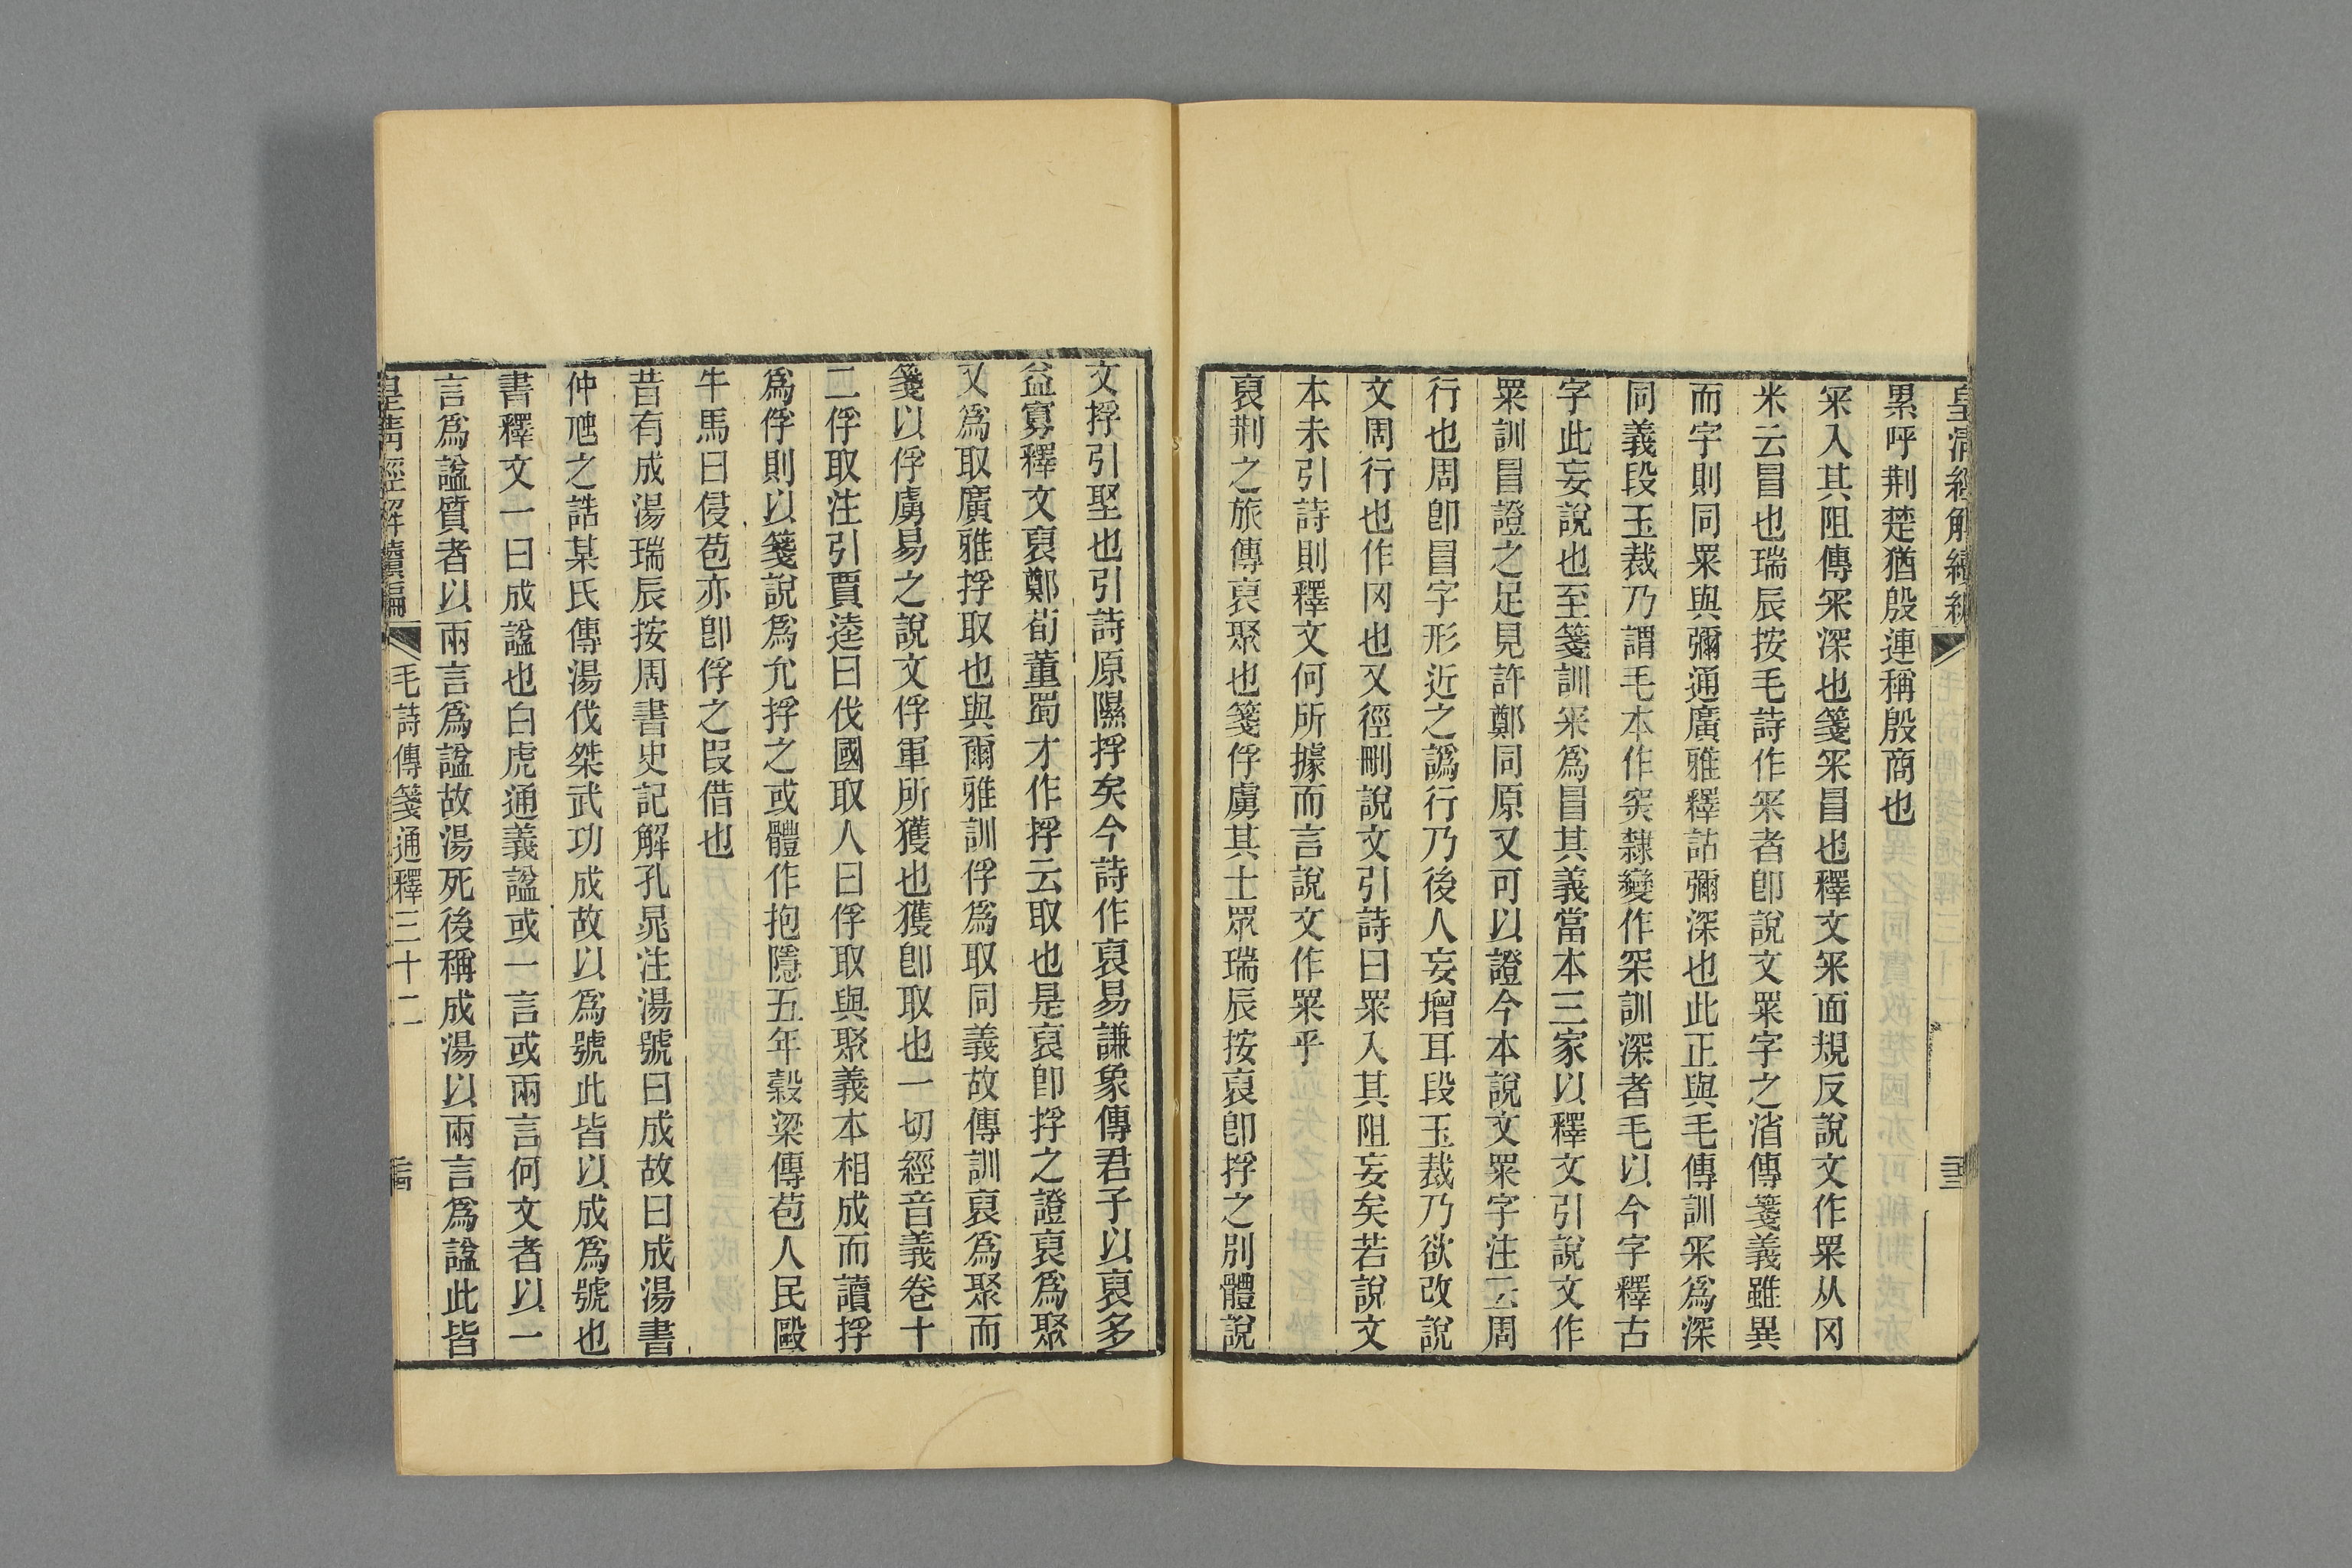 皇清經解續編
累呼荆楚猶殷連稱殷商也
罙入其阻傳罙深也箋罙冒也釋文罙面規反說文作𥥍从冈
米云冒也瑞辰按毛詩作罙者卽說文𥥍字之消傳箋義雖異
而字則同𥥍與彌通廣雅釋詁彌深也此正與毛傳訓罙爲深
同義段玉裁乃謂毛本作穾隸變作罙訓深者毛以今字釋古
字此妄說也至箋訓罙爲冒其義當本三家以釋文引說文作
𥥍訓冒證之足見許鄭同原又可以證今本說文𥥍字注云周
行也周卽冒字形近之譌行乃後人妄增耳段玉裁乃欲改說
文周行也作冈也又徑刪說文引詩曰𥥍入其阻妄矣若說文
本未引詩則釋文何所據而言說文作𥥍乎
裒荆之旅傳裒聚也箋俘虜其士眾瑞辰按裒卽捊之別體說
文捊引堅也引詩原隰捊矣今詩作裒易謙象傳君子以裒多
益寡釋文裒鄭荀董蜀才作捊云取也是裒卽捊之證裒爲聚
又爲取廣雅捊取也與爾雅訓俘爲取同義故傳訓裒爲聚而
箋以俘虜易之說文俘軍所獲也獲卽取也一切經音義卷十
二俘取注引賈逵曰伐國取人曰俘取與聚義本相成而讀捊
爲俘則以箋說爲允捊之或體作抱隱五年穀梁傳苞人民毆
牛馬曰侵苞亦卽俘之叚借也
昔有成湯瑞辰按周書史記解孔晁注湯號曰成故曰成湯書
仲虺之誥某氏傳湯伐桀武功成故以爲號此皆以成爲號也
書釋文一曰成諡也白虎通義諡或一言或兩言何文者以一
言爲諡質者以兩言爲諡故湯死後稱成湯以兩言爲諡此皆
皇清經解續編 毛詩傳箋通釋三十二